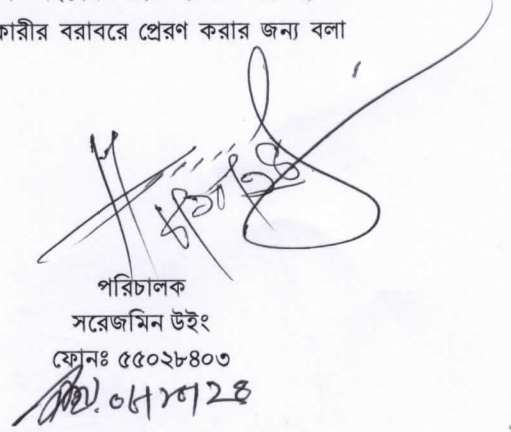 কারীর বরাবরে প্রেরণ করার জন্য বলা
পরিচালক
সরেজমিন উইং
ফোনঃ ৫৫০২৮৪০৩